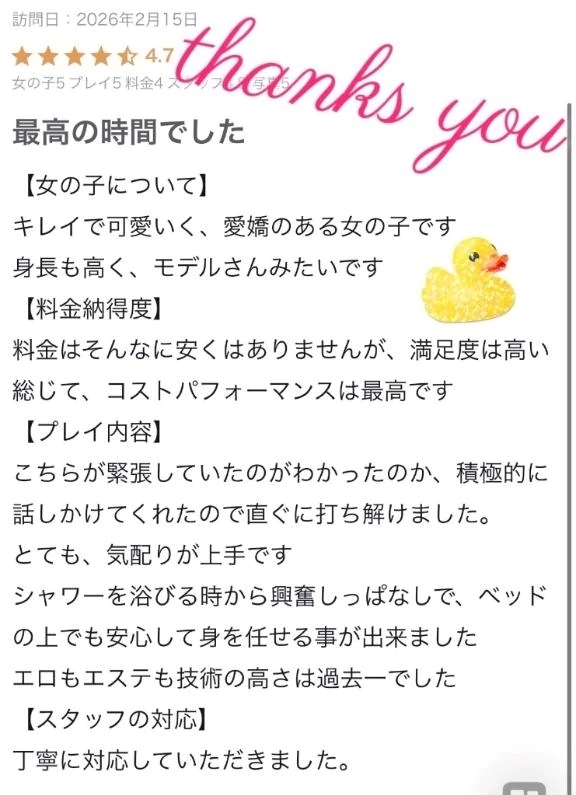 訪問日：2026年2月15日
4.7
女の子5 プレイ5 料金4 スタッフ 写真5
thanks you
最高の時間でした
【女の子について】
キレイで可愛いく、愛嬌のある女の子です
身長も高く、モデルさんみたいです
【料金納得度】
料金はそんなに安くはありませんが、満足度は高い
総じて、コストパフォーマンスは最高です
【プレイ内容】
こちらが緊張していたのがわかったのか、積極的に
話しかけてくれたので直ぐに打ち解けました。
とても、気配りが上手です
シャワーを浴びる時から興奮しっぱなしで、ベッド
の上でも安心して身を任せる事が出来ました
エロもエステも技術の高さは過去一でした
【スタッフの対応】
丁寧に対応していただきました。